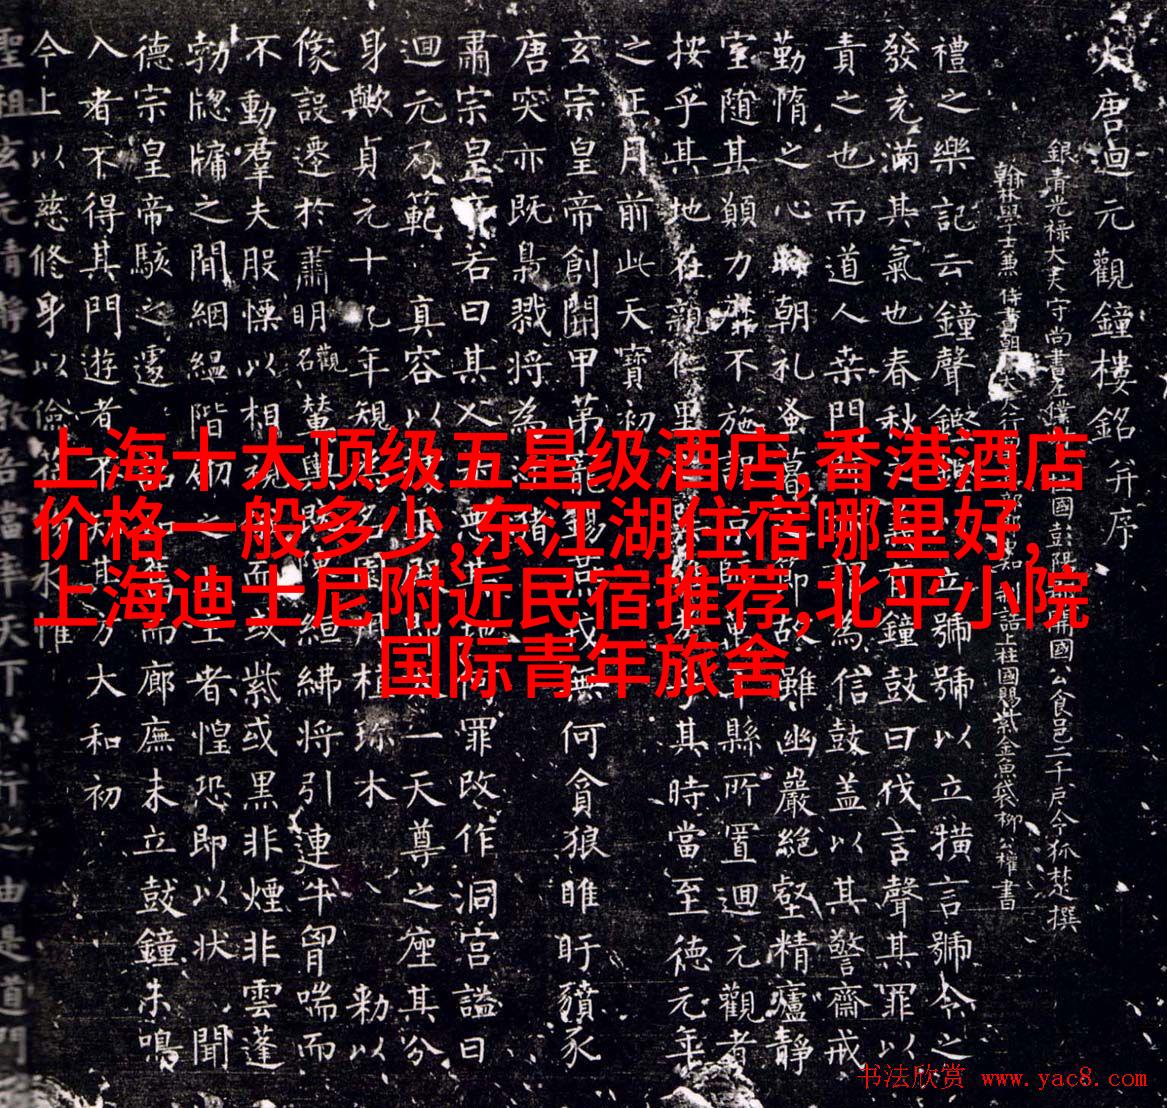 上海十大顶级五星级酒店,香港酒店
价格一般多少,东江湖住宿哪里好,
上海迪士尼附近民宿推荐,北平小院
国际青年旅舍
大唐迴元觀鐘樓銘并序
銀青光祿大夫守尚書左僕國彭陽開國公食邑二千戶令狐楚撰
翰林學士兼侍書朝知制誥上柱國賜紫金魚袋柳公權書
禮之樂記云鐘聲鏗立號號以立橫言號令之
發充滿其氣也春秋之鐘鼓曰伐言聲其罪以
責之也而道人桒門為信鼓蓋以其警齋戒
勤惰之心時朝礼蚤暮節故雖幽巖絕壑精廬靜
室随其願力靡不施縣所置迴元觀者
按乎其地在親仁里其時當至德元年
之正月前此天寶初
玄宗皇帝創開甲第寵錫無何貪狼睢盱豶豕
唐突亦既梟戮將為
肅宗皇帝若曰其人罪改作洞宮謚曰
迴元乃範 真容以一天尊之座其分
身歟貞元十九年規植琼木 勅以
像設遷於肅明觀名輦輿繐紼將引連牛胷喘而
不動羣夫股慄以相視而或紫或黑非煙非雲蓬
勃牕牖之間絪縕階主者惶恐即以狀 聞
德宗皇帝駭之遽而廊廡未立鼓鐘未鳴
入者不得其門遊者方大和初
今上以慈修身以儉惟
聖祖玄元清靜之教吾當率天下以行之由是道門
书法欣赏 www.yac8.com